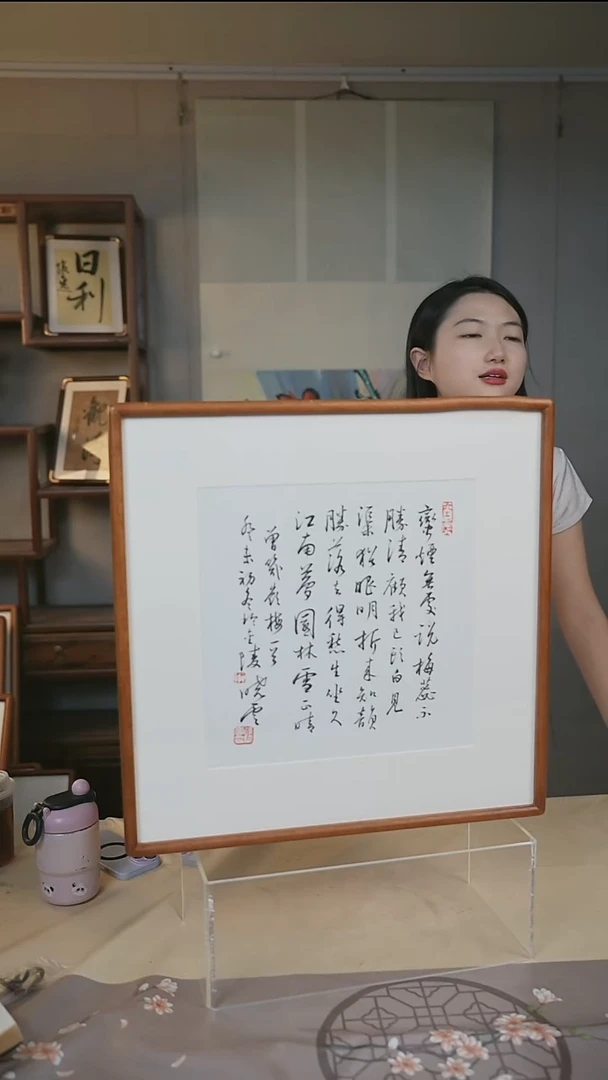 蠻煙無處說梅蕊不
勝清顧我已頭白見
渠猶眼明折來知韻
勝落去得愁生坐久
江南夢園林雪正晴
曾幾嶺梅一首
未初冬於金陵曉雲
日利